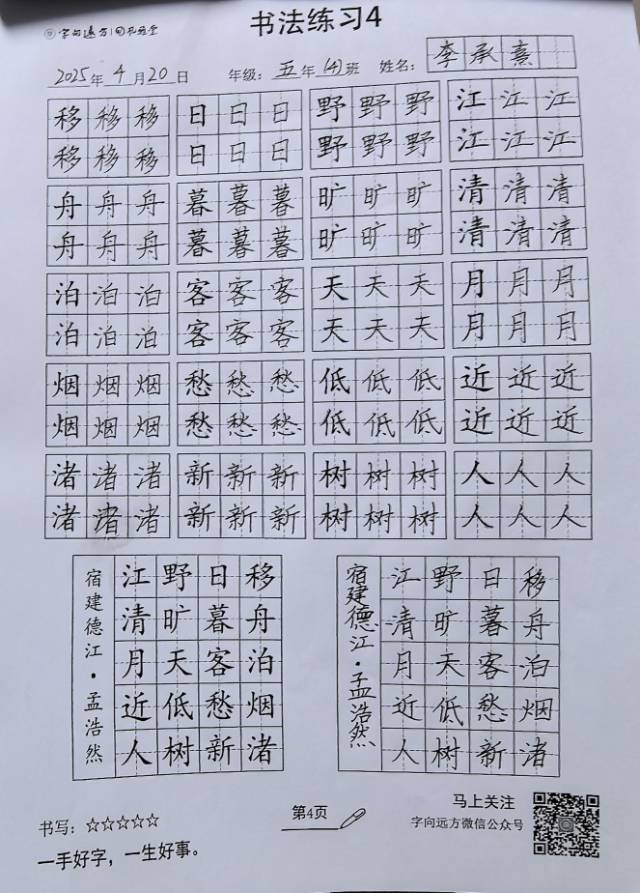 书法练习4
2025年4月20日 年级：五年(4)班 姓名：李承熹
移移移 日日日 野野野 江江江
移移移 日日日 野野野 江江江
舟舟舟 暮暮暮 旷旷旷 清清清
舟舟舟 暮暮暮 旷旷旷 清清清
泊泊泊 客客客 天天天 月月月
泊泊泊 客客客 天天天 月月月
烟烟烟 愁愁愁 低低低 近近近
烟烟烟 愁愁愁 低低低 近近近
渚渚渚 新新新 树树树 人人人
渚渚渚 新新新 树树树 人人人
宿建德江·孟浩然
移舟泊烟渚
日暮客愁新
野旷天低树
江清月近人
宿建德江·孟浩然
移舟泊烟渚
日暮客愁新
野旷天低树
江清月近人
书写：☆☆☆☆☆
一手好字，一生好事。
第4页
马上关注
字向远方微信公众号